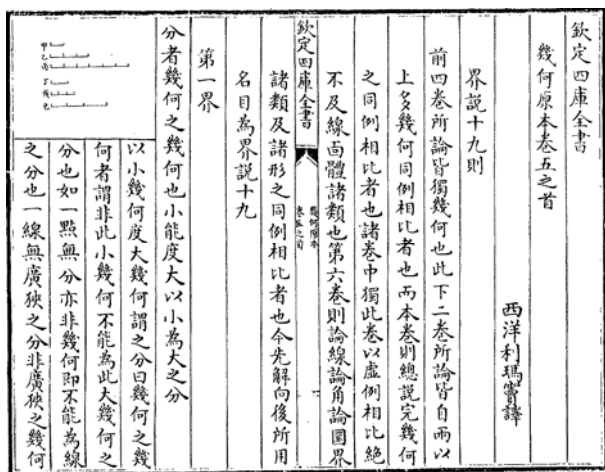 欽定四庫全書
幾何原本卷五之首
西洋利瑪竇譯
界說十九則
前四卷所論皆獨幾何也此下二卷所論皆自兩以
上多幾何同例相比者也而本卷則總說完幾何
之同例相比者也諸卷中獨此卷以虛例相比絶
不及線面體諸類也第六卷則論線論角論圜界
欽定四庫全書
幾何原本
卷五之首
一
諸類及諸形之同例相比者也今先解向後所用
名目為界說十九
第一界
分者幾何之幾何也小能度大以小為大之分
以小幾何度大幾何謂之分曰幾何之幾
何者謂非此小幾何不能為此大幾何之
分也如一點無分亦非幾何即不能為線
之分也一線無廣狹之分非廣狹之幾何
甲
乙
丙
丁
戊
己